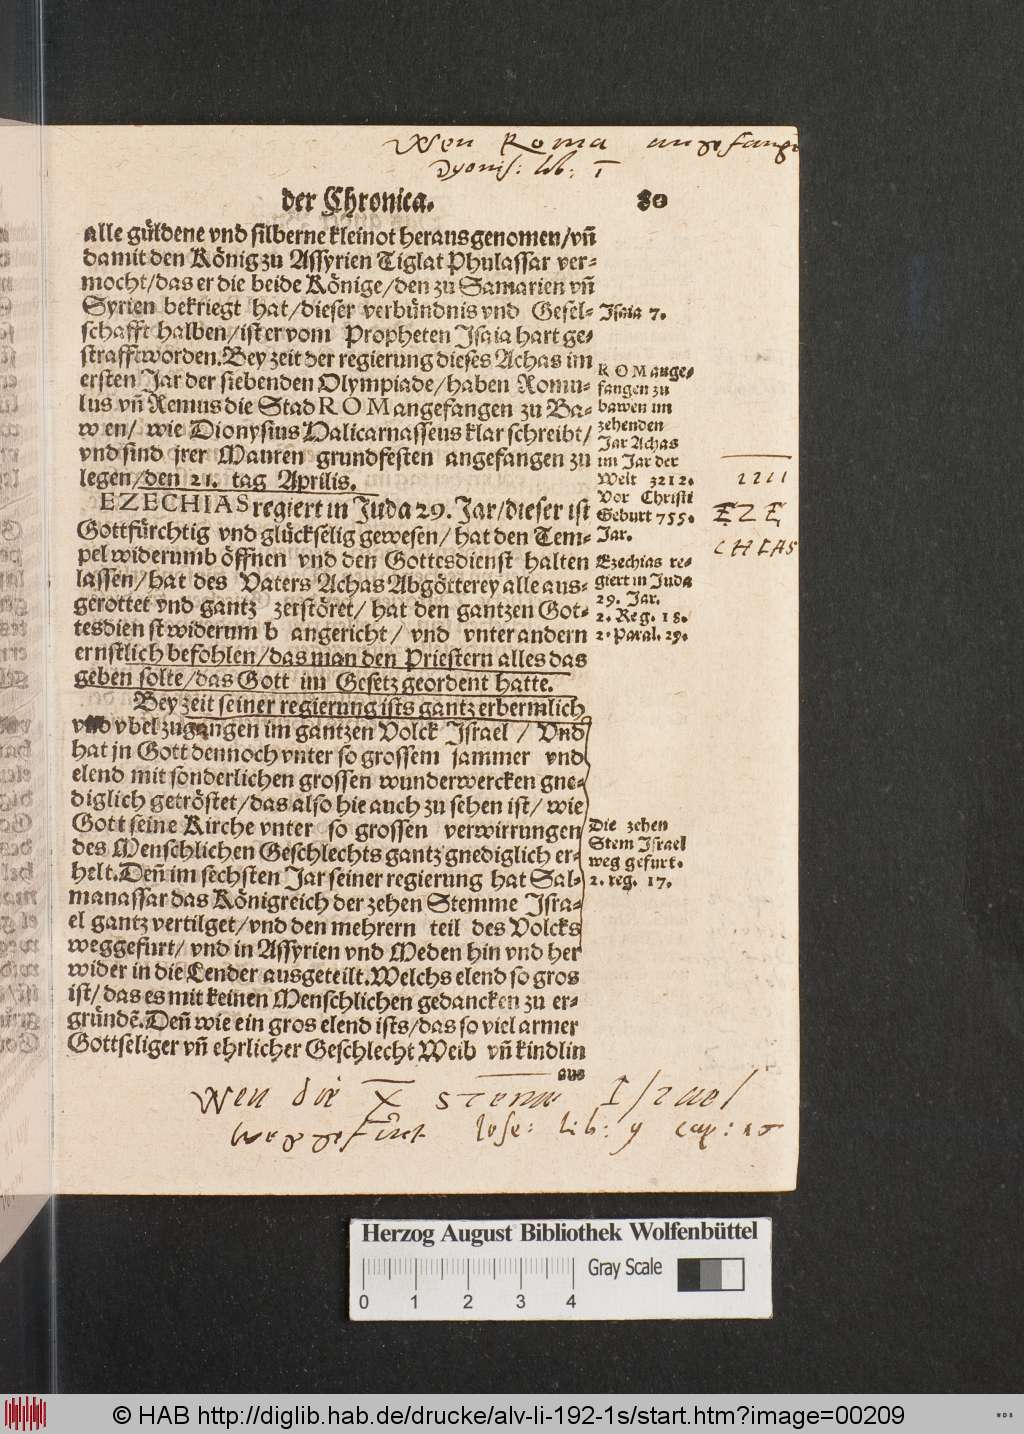 Wen Roma angefange
Dyonis: lib: I
der Chronica. 80
alle güldene vnd silberne kleinot herausgenomen/vñ
damit den König zu Assyrien Tiglat Phulassar ver-
mocht/das er die beide Könige/den zu Samarien vñ
Syrien bekriegt hat/dieser verbündnis vnd Gesel-
schafft halben/ist er vom Propheten Isaia hart ge-
strafft worden. Bey zeit der regierung dieses Achas im
ersten Jar der siebenden Olympiade/haben Romu-
lus vñ Remus die Stad ROM angefangen zu Ba-
wen/ wie Dionysius Halicarnasseus klar schreibt/
vnd sind jrer Mauren grundfesten angefangen zu
legen/den 21. tag Aprilis.
EZECHIAS regiert in Juda 29. Jar/dieser ist
Gottfürchtig vnd glückselig gewesen/hat den Tem-
pel widerumb öffnen vnd den Gottesdienst halten
lassen/hat des Vaters Achas Abgötterey alle aus-
gerottet vnd gantz zerstöret/ hat den gantzen Got-
tesdienst widerumb angericht/ vnd vnter andern
ernstlich befohlen/das man den Priestern alles das
geben solte/das Gott im Gesetz geordent hatte.
Bey zeit seiner regierung ists gantz erbermlich
vnd vbel zugangen im gantzen Volck Israel / Vnd
hat jn Gott dennoch vnter so grossem jammer vnd
elend mit sonderlichen grossen wunderwercken gne-
diglich getröstet/das also hie auch zu sehen ist/ wie
Gott seine Kirche vnter so grossen verwirrungen
des Menschlichen Geschlechts gantz gnediglich er-
helt. Deñ im sechsten Jar seiner regierung hat Sal-
manassar das Königreich der zehen Stemme Isra-
el gantz vertilget/vnd den mehrern teil des Volcks
weggefurt/ vnd in Assyrien vnd Meden hin vnd her
wider in die Lender ausgeteilt. Welchs elend so gros
ist/ das es mit keinen Menschlichen gedancken zu er-
gründẽ. Deñ wie ein gros elend ists/das so viel armer
Gottseliger vñ ehrlicher Geschlecht Weib vñ kindlin
aus
Isaia 7.
ROM ange-
fangen zu
bawen im
zehenden
Jar Achas
im Jar der
Welt 3212.
Vor Christi
Geburt 755.
Jar.
Ezechias re-
giert in Juda
29. Jar.
2. Reg. 18.
2. Paral. 29.
EZE
CHIAS
Die zehen
Stem Israel
weg gefurt.
2. reg. 17.
Wen die X stemme Israel
weggefürt Jose: Lib: 9 cap:
Herzog August Bibliothek Wolfenbüttel
Gray Scale
0 1 2 3 4
© HAB http://diglib.hab.de/drucke/alv-li-192-1s/start.htm?image=00209